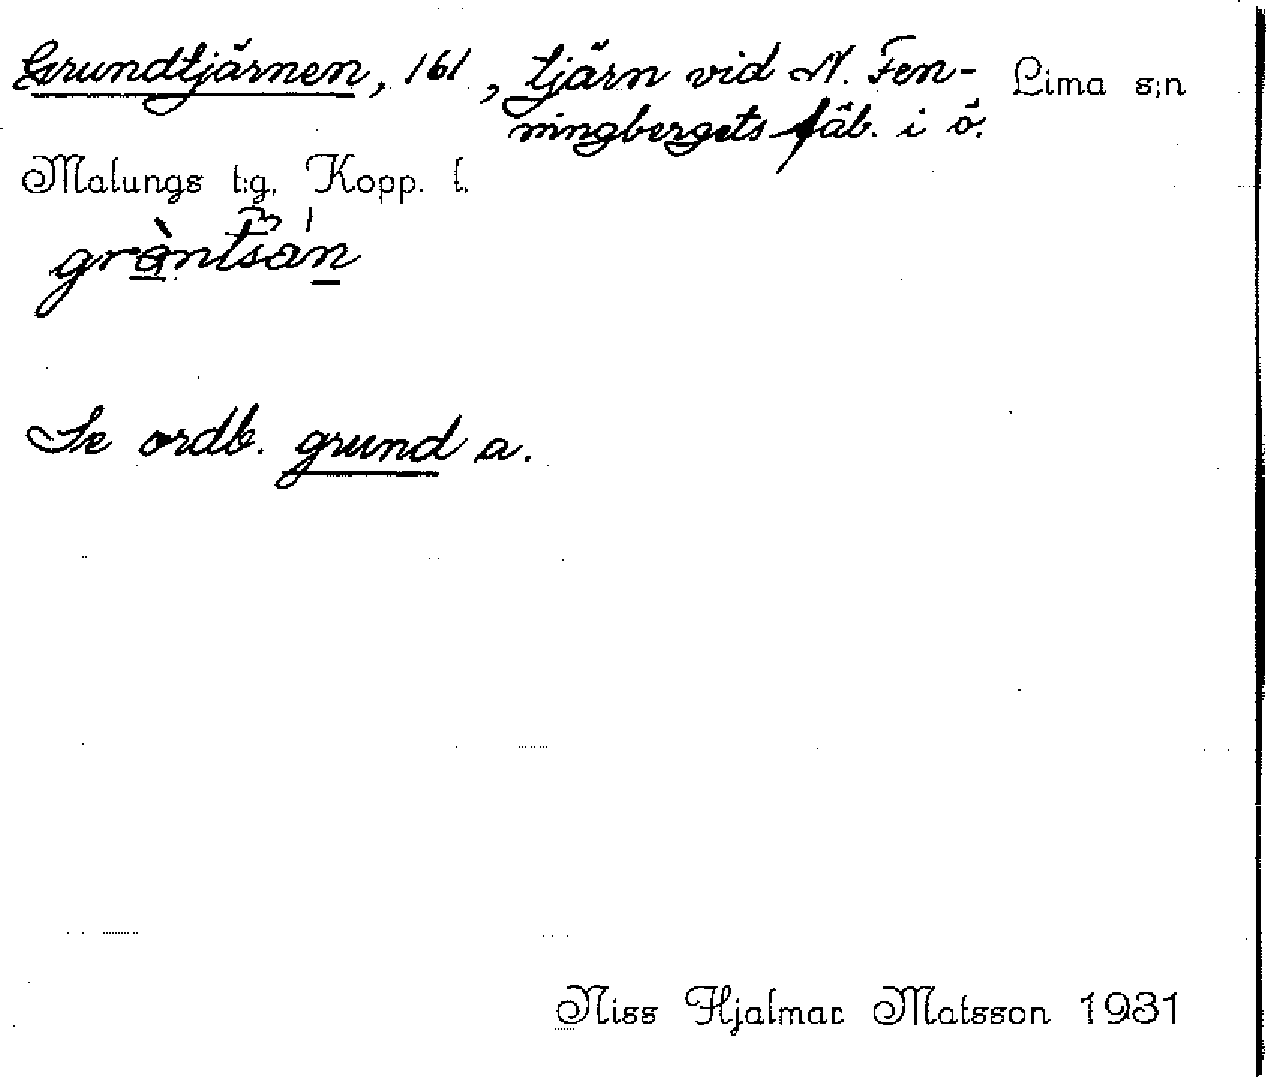 Grundtjärnen, 161, tjärn vid N. Fen- Lima s:n
ningbergets fäb. i ö.
Malungs t:g. Kopp. l.
Se ordb. grund a.
Niss Hjalmar Matsson 1931